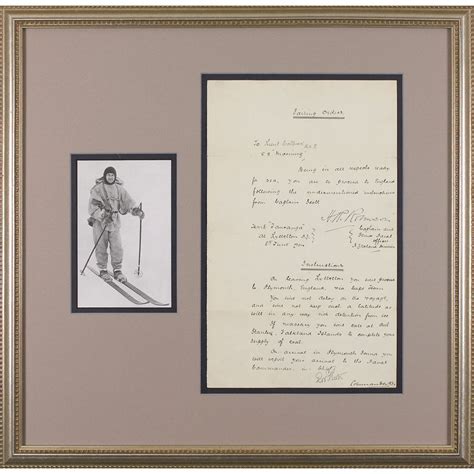 Sailing Orders
To Lieut Colbeck RNR
S.S. Morning
Being in all respects ready
for sea, you are to proceed to England
following the undermentioned instructions
from Captain Scott
"Tauranga" Captain and
At Lyttelton N.Z. Senior Naval
8th June Officer
N. Zealand
Instructions
On leaving Lyttelton you will proceed
to Plymouth England, via
You will not delay on the voyage,
and will not keep such a latitude as
will in any way risk detention from ice
If necessary you will call at Port
Stanley, Falkland Islands to complete your
supply of coal
On arrival in Plymouth Sound you
will report your arrival to the Naval
Commander in Chief
Commander RN